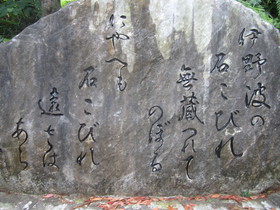 伊野波の
石こびれ
無蔵つれて
のぼる
にやへも
石こびれ
遠さは
あら